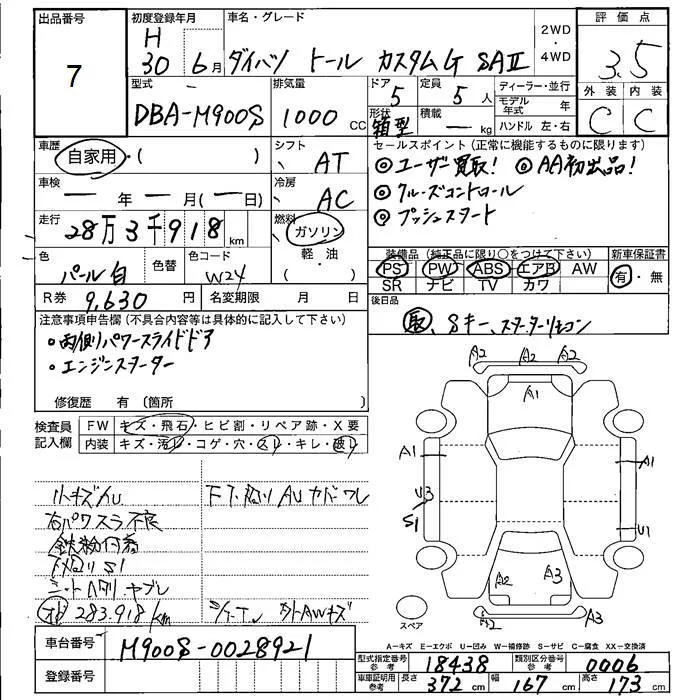 出品番号
7
初度登録年月
H 30 6月
車名・グレード
ダイハツ トール カスタムG SAII
2WD・4WD
評価点
3.5
外装 内装
C C
型式
DBA-M900S
排気量
1000 CC
ドア
5
定員
5人
形状
箱型
積載
— kg
ディーラー・並行
モデル年式 年
ハンドル 左・右
車歴
自家用・( )
シフト
AT
車検
— 年 — 月(— 日)
冷房
AC
走行
28万3千918 km
燃料
ガソリン
軽・油
( )
色
パール白
色替
色コード
W24
R券 9,630 円
名変期限 月 日
セールスポイント(正常に機能するものに限ります)
◎ユーザー買取! ◎AA初出品!
◎クルーズコントロール
◎プッシュスタート
装備品(純正品に限り○をつけて下さい)
新車保証書
PS PW ABS エアB AW
SR ナビ TV カワ
有・無
後日品
Sキー、スターターリモコン
注意事項申告欄(不具合内容等は具体的に記入して下さい)
・両側パワースライドドア
・エンジンスターター
修復歴 有(箇所 )
検査員記入欄
FW キズ・飛石・ヒビ割・リペア跡・X要
内装 キズ・汚レ・コゲ・穴・スレ・キレ・破レ
小キズAU
右パワスラ不良
鉄粉付着
下廻りS1
シートヘタリ、ヤブレ
283,918km
下廻りAU カバーワレ
外AWキズ
車台番号 M900S-0028921
登録番号
A2 A2 A2
A1
A1 A1
U3
S1 U1
A2 A3
A2 A3
スペア
A−キズ E−エクボ U−凹み W−補修跡 S−サビ C−腐食 XX−交換済
型式指定番号参考 18438 類別区分番号参考 0006
車庫証明用参考 長さ 372 cm 幅 167 cm 高さ 173 cm